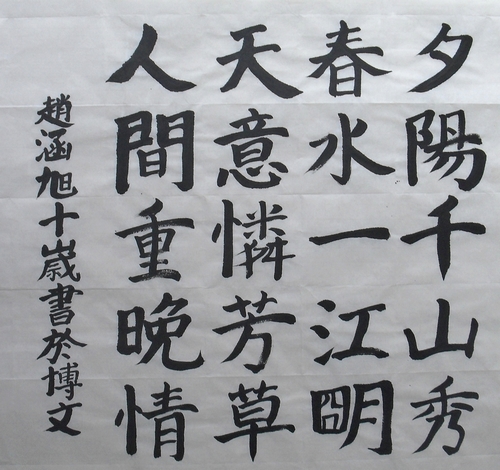 夕陽千山秀
春水一江明
天意憐芳草
人間重晚情
趙涵旭十歲書於博文